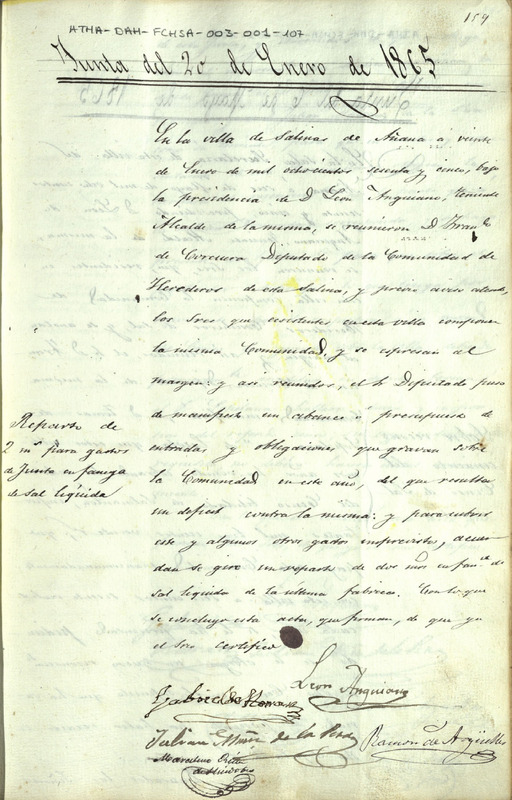 HTHA-DAH-FCHSA-003-001-107
159
Junta del 20 de Enero de 1865
En la villa de Salinas de Añana á veinte
de Enero de mil ochocientos sesenta y cinco, bajo
la presidencia de D Leon Anguiano, Teniente
Alcalde de la misma, se reunieron D Fran.co
de Corcuera Diputado de la Comunidad de
Herederos de esta Salina, y previo aviso
los Sres que existentes en esta villa componen
la misma Comunidad, y se espresan al
margen: y asi reunidos, el S Diputado puso
de manifiesto un abance ó presupuesto de
entradas y obligaciones que gravan sobre
la Comunidad en este año, del que resulta
un deficit contra la misma: y para cubrir
este y algunos otros gastos imprevistos, acuer
dan se gire un reparto de dos mrs en fan.a de
sal liquida de la última fabrica. Con lo que
se concluyó esta acta, que firman, de que yo
el Srio certifico
Reparto de
2 m.s para gastos
de Junta en fanega
de sal líquida
Leon Anguiano
Gabriel de
Julian de la
Ramon de Argüelles
Marcelino